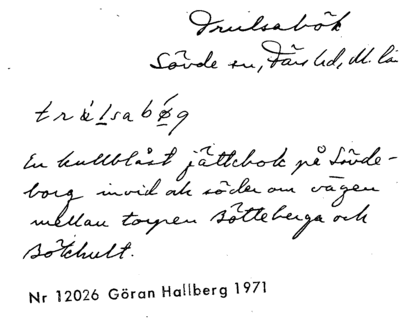 Drulsabök
Sövde sn, Färs hd, M. län
trúlsabǿg
En kullblåst jättebok på Sövde-
borg invid och söder om vägen
mellan torpen Sötteberga och
Bökhult.
Nr 12026 Göran Hallberg 1971